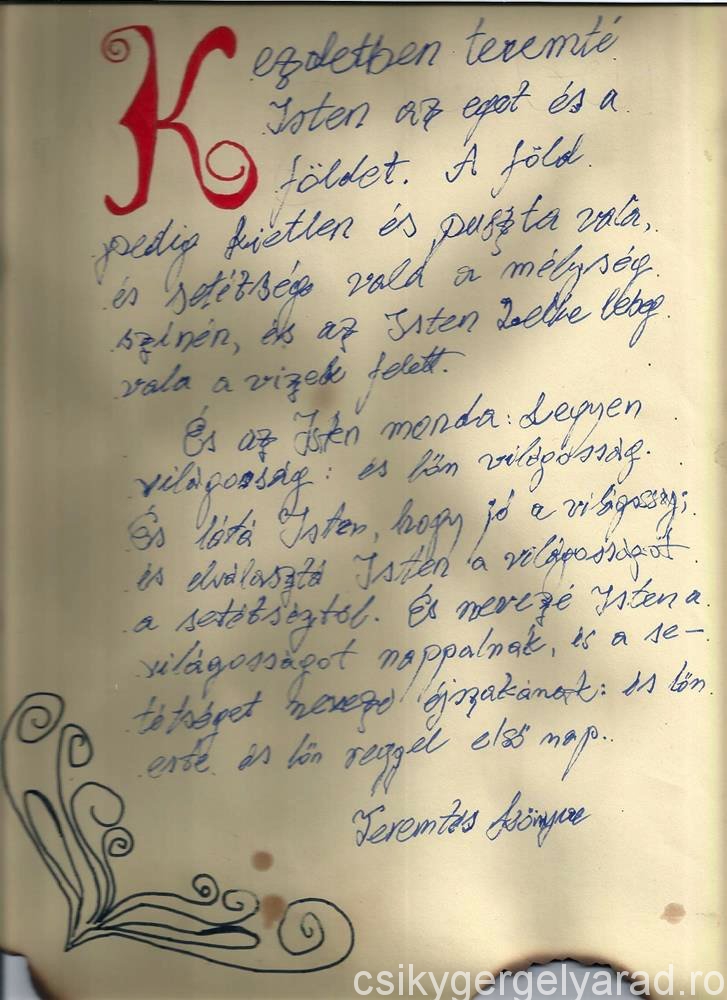 Kezdetben teremté
Isten az eget és a
földet. A föld
pedig kietlen és puszta vala,
és setétség vala a mélység
színén, és az Isten Lelke lebeg
vala a vizek felett.
És az Isten monda: Legyen
világosság: és lőn világosság.
És látá Isten, hogy jó a világosság;
és elválasztá Isten a világosságot
a setétségtől. És nevezé Isten a
világosságot nappalnak, és a se-
tétséget nevezé éjszakának: és lőn
este és lőn reggel első nap.
Teremtés könyve
csikygergelyarad.ro